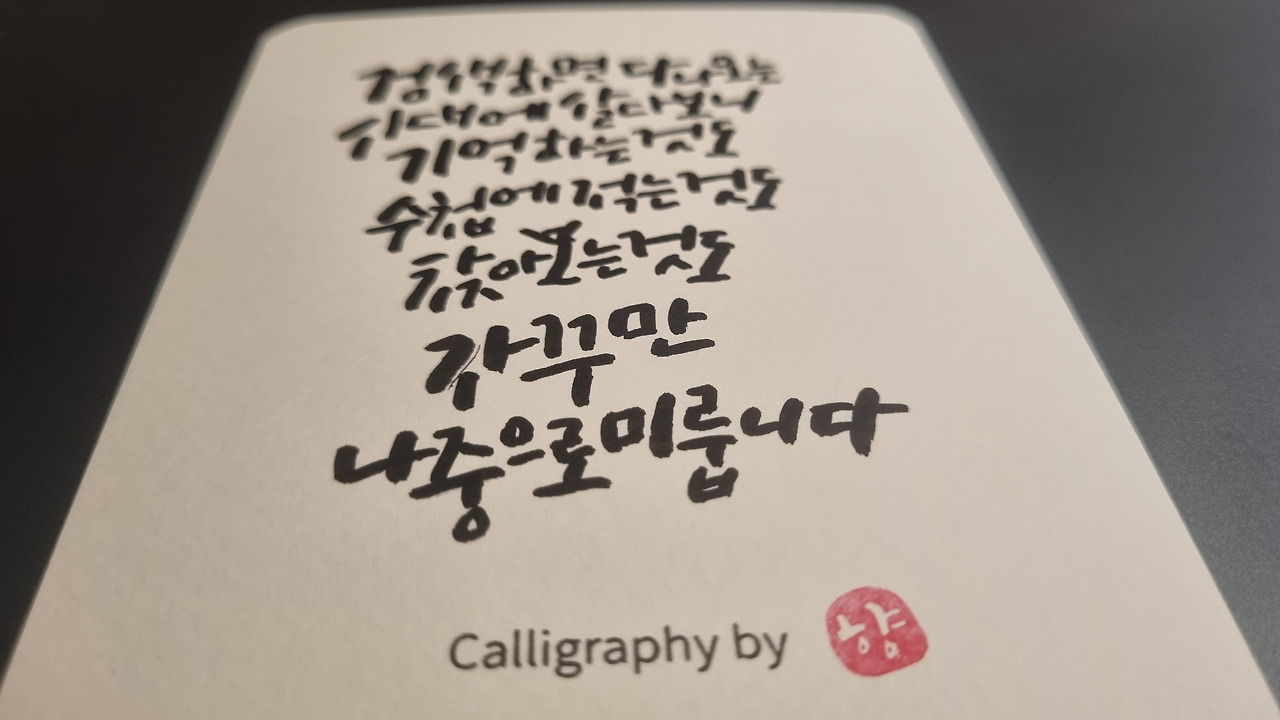 검색하면 다 나오는
시대에 살다보니
기억하는 것도
수첩에 적는 것도
찾아보는 것도
자꾸만
나중으로 미룹니다
Calligraphy by